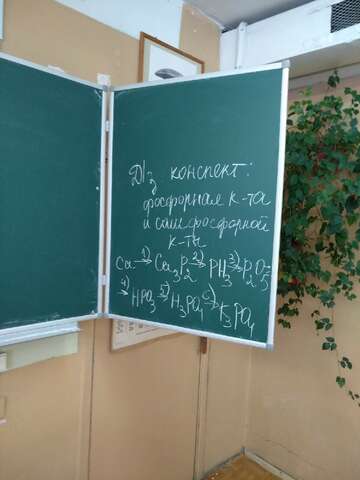 Д/з конспект:
фосфорная к-та
и соли фосфорной
к-ты
Ca 1)→ Ca3P2 2)→ PH3 3)→ P2O5
4)→ HPO3 5)→ H3PO4 6)→ K3PO4